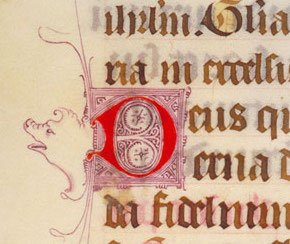 ihrlm̄. Gl̄ia
ria in excelsi
Deus qu
erna d
da fidelium